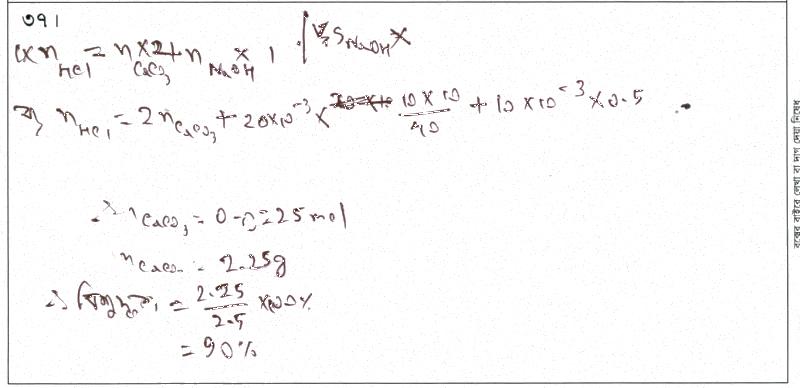 ৩৭।
1×n_HCl = n_CaCO₃×2 + n_NaOH×1
বা, n_HCl = 2n_CaCO₃ + 20×10⁻³ × 10×10/40 + 10×10⁻³×0.5
∴ n_CaCO₃ = 0.0225 mol
n_CaCO₃ = 2.25g
∴ বিশুদ্ধতা = 2.25/2.5 ×100%
= 90%
বক্সের বাইরে লেখা বা দাগ দেয়া নিষেধ